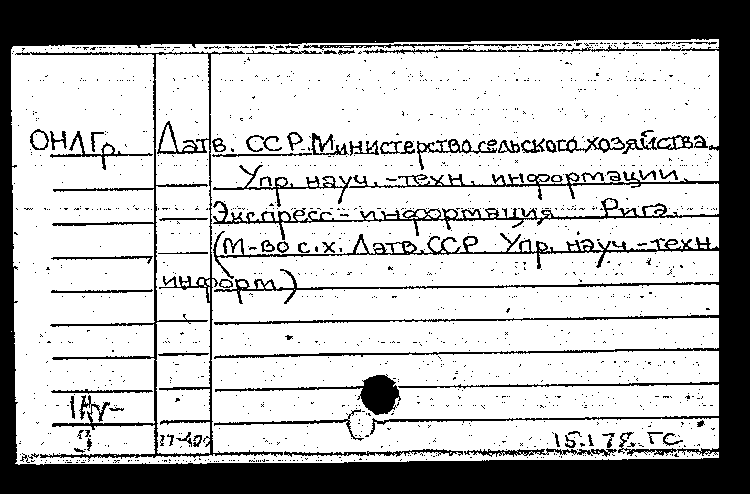 ОНЛГр. Латв. ССР. Министерство сельского хозяйства.
Упр. науч.-техн. информации.
Экспресс-информация. Рига.
(М-во с.х. Латв. ССР Упр. науч.-техн.
информ.)
15.1.78. ГС